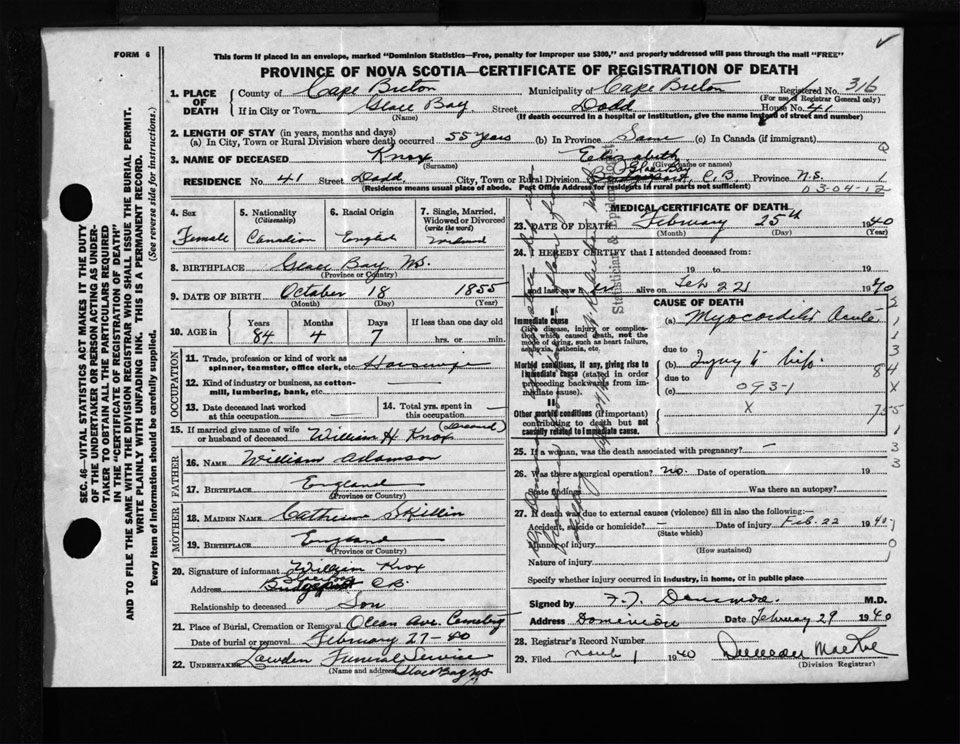 FORM 6
This form if placed in an envelope, marked "Dominion Statistics—Free, penalty for improper use $300," and properly addressed will pass through the mail "FREE"
PROVINCE OF NOVA SCOTIA—CERTIFICATE OF REGISTRATION OF DEATH
SEC. 46—VITAL STATISTICS ACT MAKES IT THE DUTY
OF THE UNDERTAKER OR PERSON ACTING AS UNDER-
TAKER TO OBTAIN ALL THE PARTICULARS REQUIRED
IN THE "CERTIFICATE OF REGISTRATION OF DEATH"
AND TO FILE THE SAME WITH THE DIVISION REGISTRAR WHO SHALL ISSUE THE BURIAL PERMIT.
WRITE PLAINLY WITH UNFADING INK. THIS IS A PERMANENT RECORD.
Every item of information should be carefully supplied. (See reverse side for instructions.)
1. PLACE OF DEATH County of Cape Breton Municipality of Cape Breton Registered No. 316
(For use of Registrar General only)
If in City or Town Glace Bay Street Dodd House No. 41
(Name) (If death occurred in a hospital or institution, give the name instead of street and number)
2. LENGTH OF STAY (in years, months and days)
(a) In City, Town or Rural Division where death occurred 55 years (b) In Province Same (c) In Canada (if immigrant)
3. NAME OF DECEASED Knox Elizabeth
(Surname) (Given name or names)
RESIDENCE No. 41 Street Dodd City, Town or Rural Division Glace Bay C.B. Province N.S.
(Residence means usual place of abode. Post Office Address for residents in rural parts not sufficient)
03-04-12
4. Sex
Female
5. Nationality
(Citizenship)
Canadian
6. Racial Origin
England
7. Single, Married,
Widowed or Divorced
(write the word)
Widowed
8. BIRTHPLACE Glace Bay N.S.
(Province or Country)
9. DATE OF BIRTH October 18 1855
(Month) (Day) (Year)
10. AGE in Years Months Days If less than one day old
84 4 7 hrs. or min.
OCCUPATION
11. Trade, profession or kind of work as
spinner, teamster, office clerk, etc. Housewife
12. Kind of industry or business, as cotton-
mill, lumbering, bank, etc.
13. Date deceased last worked
at this occupation
14. Total yrs. spent in
this occupation
15. If married give name of wife
or husband of deceased William H Knox (Deceased)
FATHER
16. Name William Adamson
17. Birthplace England
(Province or Country)
MOTHER
18. MAIDEN NAME Catherine Skillin
19. BIRTHPLACE England
(Province or Country)
20. Signature of informant William Knox
Address Glace Bay C.B.
Relationship to deceased Son
21. Place of Burial, Cremation or Removal Ocean Ave. Cemetery
Date of burial or removal February 27-40
22. UNDERTAKER Lawden Funeral Service
(Name and address) Glace Bay NS
MEDICAL CERTIFICATE OF DEATH
23. DATE OF DEATH February 25th 1940
(Month) (Day) (Year)
24. I HEREBY CERTIFY that I attended deceased from:
19 to 19
and last saw her alive on Feb 22 1940
CAUSE OF DEATH
Immediate cause
Give disease, injury or complica-
tion which caused death, not the
mode of dying, such as heart failure,
asphyxia, asthenia, etc.
(a) Myocarditis Acute
Morbid conditions, if any, giving rise to
immediate cause (stated in order
proceeding backwards from im-
mediate cause).
due to
(b) Injury to hip
due to
(c) 093-1
Other morbid conditions (if important)
contributing to death but not
causally related to immediate cause.
X
25. If a woman, was the death associated with pregnancy? —
26. Was there a surgical operation? no. Date of operation 19
State findings Was there an autopsy?
27. If death was due to external causes (violence) fill in also the following:
Accident, suicide or homicide? — Date of injury Feb. 22 1940
(State which)
Manner of injury
(How sustained)
Nature of injury
Specify whether injury occurred in industry, in home, or in public place
Signed by M.D.
Address Dominion Date February 29 1940
28. Registrar's Record Number
29. Filed March 1 1940 Duncan MacRae
(Division Registrar)